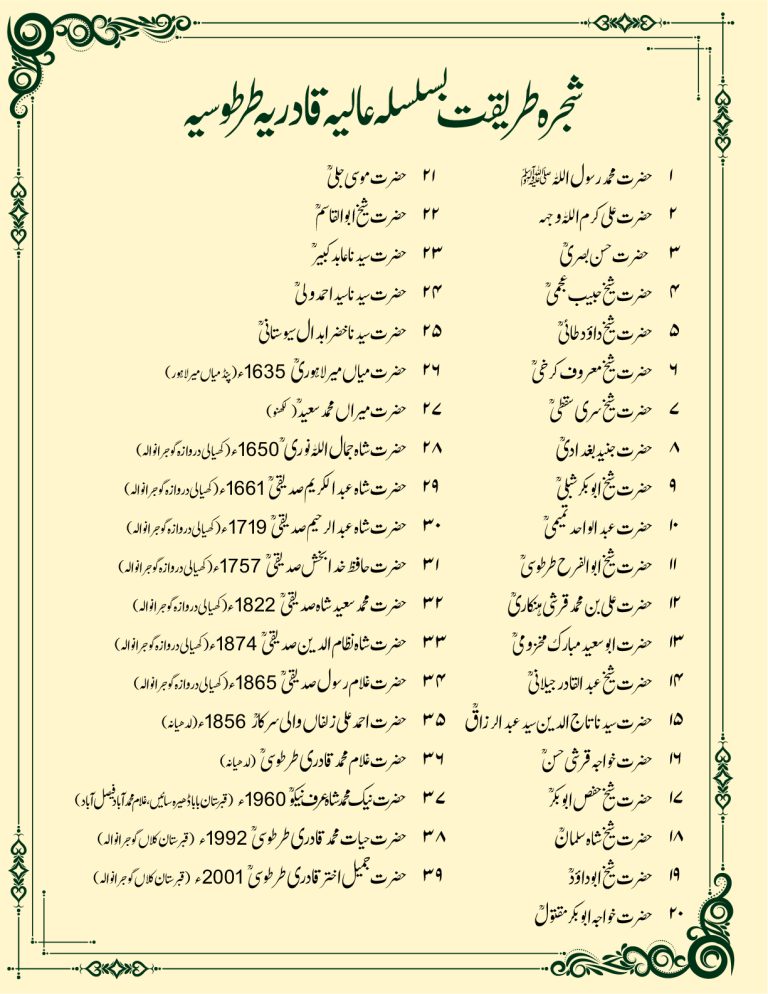 شجرہ طریقت بسلسلہ عالیہ قادریہ طرطوسیہ
۱ حضرت محمد رسول اللہ ﷺ
۲ حضرت علی کرم اللہ وجہہ
۳ حضرت حسن بصریؒ
۴ حضرت شیخ حبیب عجمیؒ
۵ حضرت شیخ داؤد طائیؒ
۶ حضرت شیخ معروف کرخیؒ
۷ حضرت شیخ سری سقطیؒ
۸ حضرت جنید بغدادیؒ
۹ حضرت شیخ ابو بکر شبلیؒ
۱۰ حضرت عبد الواحد تمیمیؒ
۱۱ حضرت شیخ ابوالفرح طرطوسیؒ
۱۲ حضرت علی بن محمد قرشی ہنکاریؒ
۱۳ حضرت ابو سعید مبارک مخزومیؒ
۱۴ حضرت شیخ عبد القادر جیلانیؒ
۱۵ حضرت سیدنا تاج الدین سید عبد الرزاقؒ
۱۶ حضرت خواجہ قرشی حسنؒ
۱۷ حضرت شیخ حفص ابو بکرؒ
۱۸ حضرت شیخ شاہ سلمانؒ
۱۹ حضرت شیخ ابو داؤدؒ
۲۰ حضرت خواجہ ابو بکر مقتولؒ
۲۱ حضرت موسی جلیؒ
۲۲ حضرت شیخ ابو القاسمؒ
۲۳ حضرت سیدنا عابد کبیرؒ
۲۴ حضرت سیدنا سید احمد ولیؒ
۲۵ حضرت سیدنا خضر ابدال سیوستانیؒ
۲۶ حضرت میاں میر لاہوریؒ 1635ء (پنڈ میاں میر لاہور)
۲۷ حضرت میراں محمد سعیدؒ (لکھنو)
۲۸ حضرت شاہ جمال اللہ نوریؒ 1650ء (کھیالی دروازہ گوجرانوالہ)
۲۹ حضرت شاہ عبد الکریم صدیقیؒ 1661ء (کھیالی دروازہ گوجرانوالہ)
۳۰ حضرت شاہ عبد الرحیم صدیقیؒ 1719ء (کھیالی دروازہ گوجرانوالہ)
۳۱ حضرت حافظ خدا بخش صدیقیؒ 1757ء (کھیالی دروازہ گوجرانوالہ)
۳۲ حضرت محمد سعید شاہ صدیقیؒ 1822ء (کھیالی دروازہ گوجرانوالہ)
۳۳ حضرت شاہ نظام الدین صدیقیؒ 1874ء (کھیالی دروازہ گوجرانوالہ)
۳۴ حضرت غلام رسول صدیقیؒ 1865ء (کھیالی دروازہ گوجرانوالہ)
۳۵ حضرت احمد علی زلفاں والی سرکارؒ 1856ء (لدھیانہ)
۳۶ حضرت غلام محمد قادری طرطوسیؒ (لدھیانہ)
۳۷ حضرت نیک محمد شاہ عرف نیکوؒ 1960ء (قبرستان بابا ڈھیرہ سائیں، غلام محمد آباد فیصل آباد)
۳۸ حضرت حیات محمد قادری طرطوسیؒ 1992ء (قبرستان کلاں گوجرانوالہ)
۳۹ حضرت جمیل اختر قادری طرطوسیؒ 2001ء (قبرستان کلاں گوجرانوالہ)